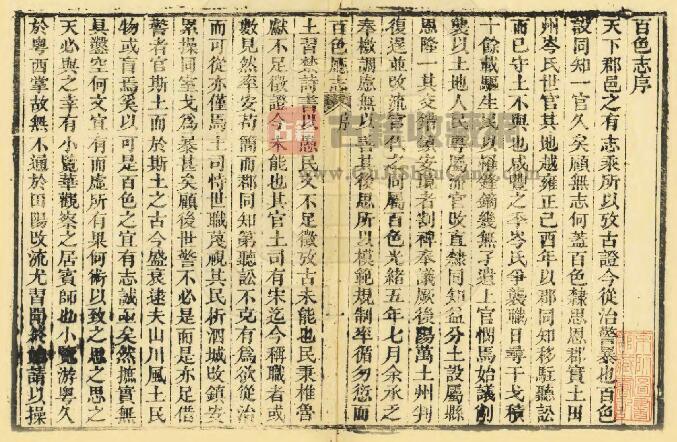 百色志序
天下郡邑之有志乘所以攷古證今從治警暴也百色
設同知一官久矣顧無志何蓋百色隸思恩郡實土田
州岑氏世官其地越雍正己酉年以郡同知移駐聽訟
而已守土不與也咸豐之季岑氏爭襲職日尋干戈積
十餘載驅生民以權鋒鏑幾無孑遺上官憫焉始議創
襲以土地人民專屬流官改直隸同知益分土設屬縣
恩隆一其交錯鎮安境者割裨奉議厥後陽萬土州判
復遂並改流官色之何屬百色光緒五年七月余承之
奉檄調處無以善其後思所以模範規制率循勿愆而
百色廳志 序
土習楚詩書以愚民文不足徵攷古未能也民秉椎魯
獻不足徵證今未能也其官土司有宋迄今稱職者或
數見然率安苟簡而郡同知第聽訟不克有為欲從治
而可從亦僅焉土司恃世職蔑視其民析酒城改鎮安
累操同室戈為暴甚矣顧後世警不必是而是亦足借
警者官斯土而於斯土之古今盛衰逮夫山川風土民
物或盲焉矣以可是百色之宜有志誠 矣然摭實無
具鑿空何文宜有而虛所有果何術以致之思之思之
天必與之幸有小 華觀察之居賓師也小 游粵久
於粵西掌故無不通於田陽改流尤習聞終 請以操